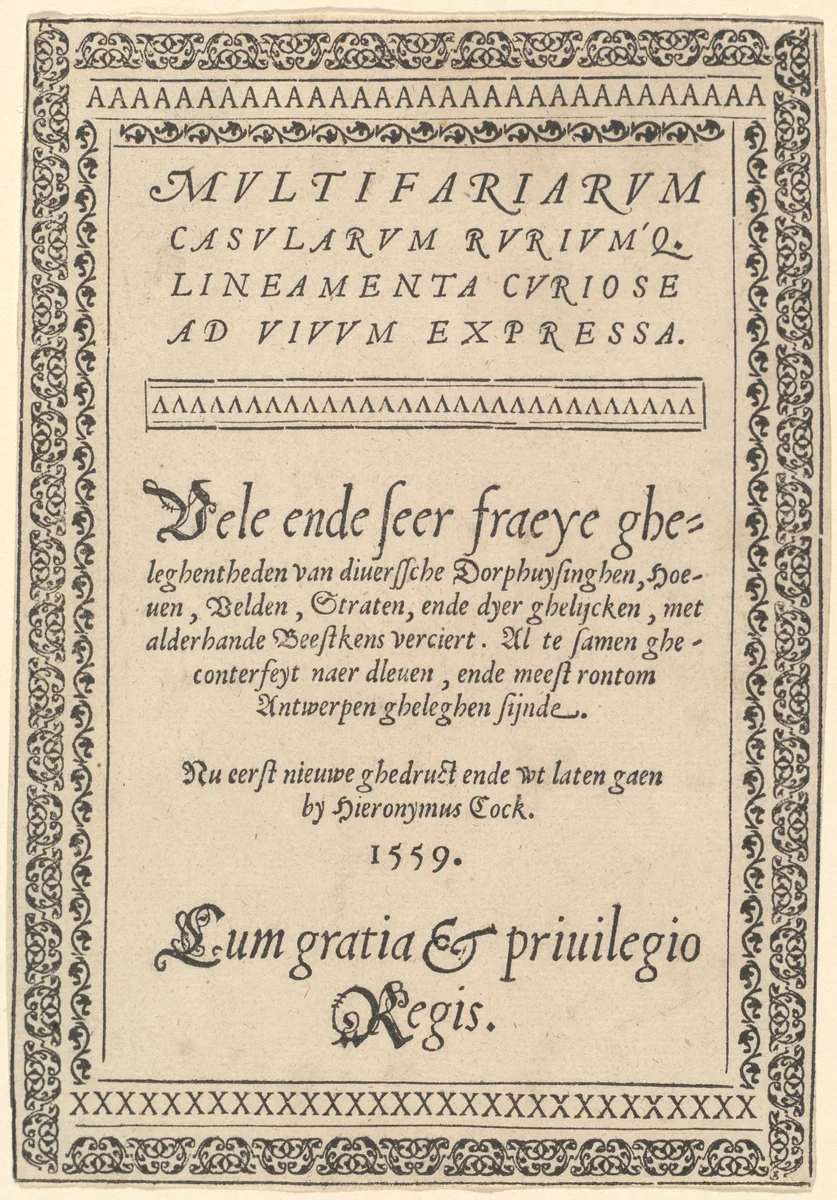 AAAAAAAAAAAAAAAAAAAAAAAAAAAAAA
MVLTIFARIARVM
CASVLARVM RVRIVM'Q.
LINEAMENTA CVRIOSE
AD VIVVM EXPRESSA.
ΛΛΛΛΛΛΛΛΛΛΛΛΛΛΛΛΛΛΛΛΛΛΛΛΛΛΛΛΛ
Vele ende ſeer fraeye ghe⸗
leghentheden van diuerſſche Dorphuyſinghen, Hoe-
uen, Velden, Straten, ende dyer ghelijcken, met
alderhande Beeſtkens verciert. Al te ſamen ghe-
conterfeyt naer dleuen, ende meeſt rontom
Antwerpen gheleghen ſijnde.
Nu eerſt nieuwe ghedruct ende wt laten gaen
by Hieronymus Cock.
1559.
Cum gratia & priuilegio
Regis.
XXXXXXXXXXXXXXXXXXXXXXXXXXXXXX